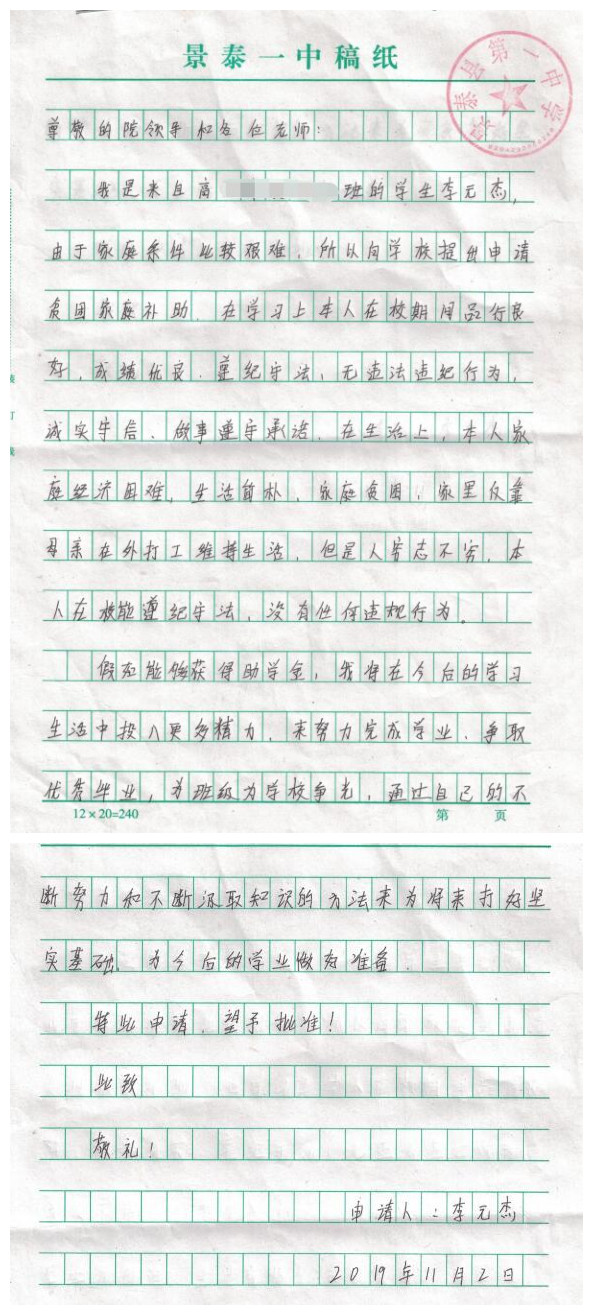 景泰一中稿纸
景泰县第一中学
尊敬的院领导和各位老师：
我是来自高
班的学生李元杰，
由于家庭条件比较艰难，所以向学校提出申请
贫困家庭补助．在学习上本人在校期间品行良
好，成绩优良．遵纪守法，无违法违纪行为，
诚实守信、做事遵守承诺．在生活上，本人家
庭经济困难，生活简朴，家庭贫困，家里仅靠
母亲在外打工维持生活，但是人穷志不穷，本
人在校能遵纪守法，没有任何违规行为。
假如能够获得助学金，我将在今后的学习
生活中投入更多精力，来努力完成学业、争取
优秀毕业，为班级为学校争光，通过自己的不
12×20=240
第 页
断努力和不断汲取知识的方法来为将来打好坚
实基础、为今后的学业做好准备．
特此申请，望予批准！
此致
敬礼！
申请人：李元杰
2019年11月2日